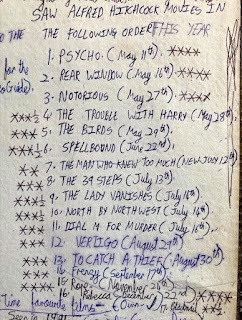 SAW ALFRED HITCHCOCK MOVIES IN
THE FOLLOWING ORDER THIS YEAR
1. PSYCHO. (May 11th). ****
2. REAR WINDOW (May 16th). ****
for the
3. NOTORIOUS (May 27th). ****
Guide).
***½ 4. THE TROUBLE WITH HARRY (May 28th).
***½ 5. THE BIRDS (May 29th).
***½ 6. SPELLBOUND (June 22nd).
7. THE MAN WHO KNEW TOO MUCH (NEW) (JUN 12th)
*** 8. THE 39 STEPS (July 13th).
***½ 9. THE LADY VANISHES (July 14th)
***½ 10. NORTH BY NORTHWEST (July 16th).
*** 11. DIAL M FOR MURDER (July
*** 12. VERTIGO (August 29th)
*** 13. TO CATCH A THIEF (August 30th)
*** 14. Frenzy (September 17th).
15. Rope (November 26th).
16. Rebecca (December 22nd)
Time favourite films - (Own